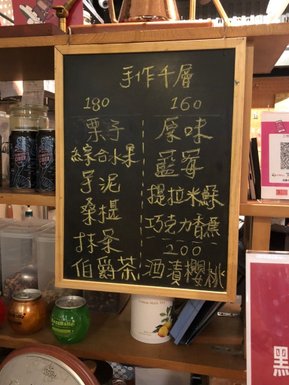 手作千層
180
栗子
綜合水果
芋泥
桑椹
抹茶
伯爵茶
160
原味
藍莓
提拉米蘇
巧克力香蕉
200
酒漬櫻桃
黑